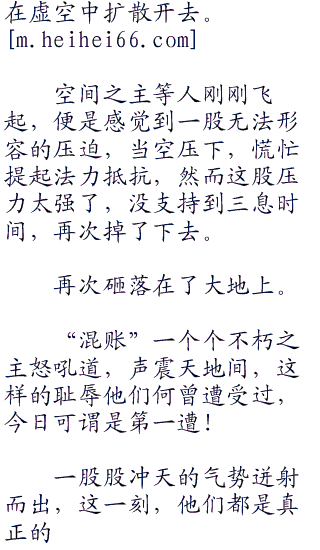 在虚空中扩散开去。
[m.heihei66.com]
空间之主等人刚刚飞
起，便是感觉到一股无法形
容的压迫，当空压下，慌忙
提起法力抵抗，然而这股压
力太强了，没支持到三息时
间，再次掉了下去。
再次砸落在了大地上。
“混账”一个个不朽之
主怒吼道，声震天地间，这
样的耻辱他们何曾遭受过，
今日可谓是第一遭！
一股股冲天的气势迸射
而出，这一刻，他们都是真
正的